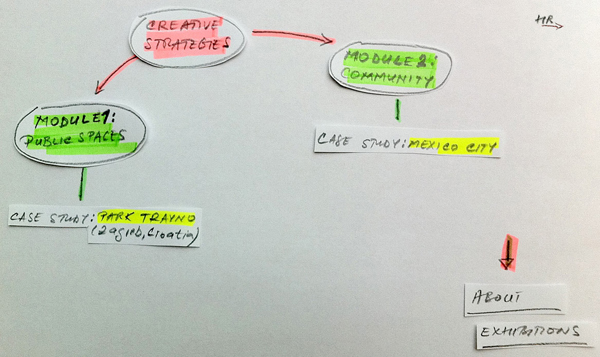 CREATIVE
STRATEGIES
HR
MODULE 2:
COMMUNITY
MODULE 1:
PUBLIC SPACES
CASE STUDY: MEXICO CITY
CASE STUDY: PARK TRAVNO
(Zagreb, Croatia)
ABOUT
EXHIBITIONS